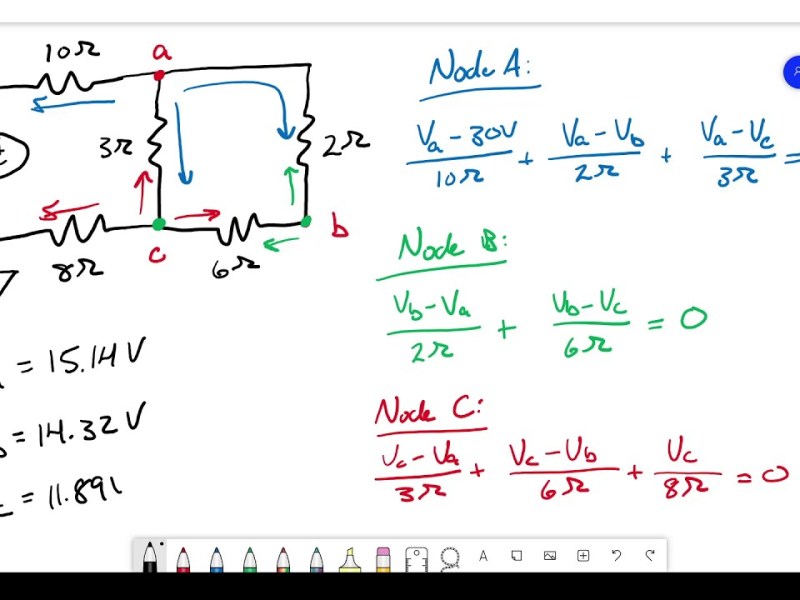 10Ω
a
3Ω
2Ω
b
c
8Ω
6Ω
= 15.14 V
= 14.32 V
= 11.89
Node A:
Va - 30V / 10Ω + Va - Vb / 2Ω + Va - Vc / 3Ω =
Node B:
Vb - Va / 2Ω + Vb - Vc / 6Ω = 0
Node C:
Vc - Va / 3Ω + Vc - Vb / 6Ω + Vc / 8Ω = 0
A